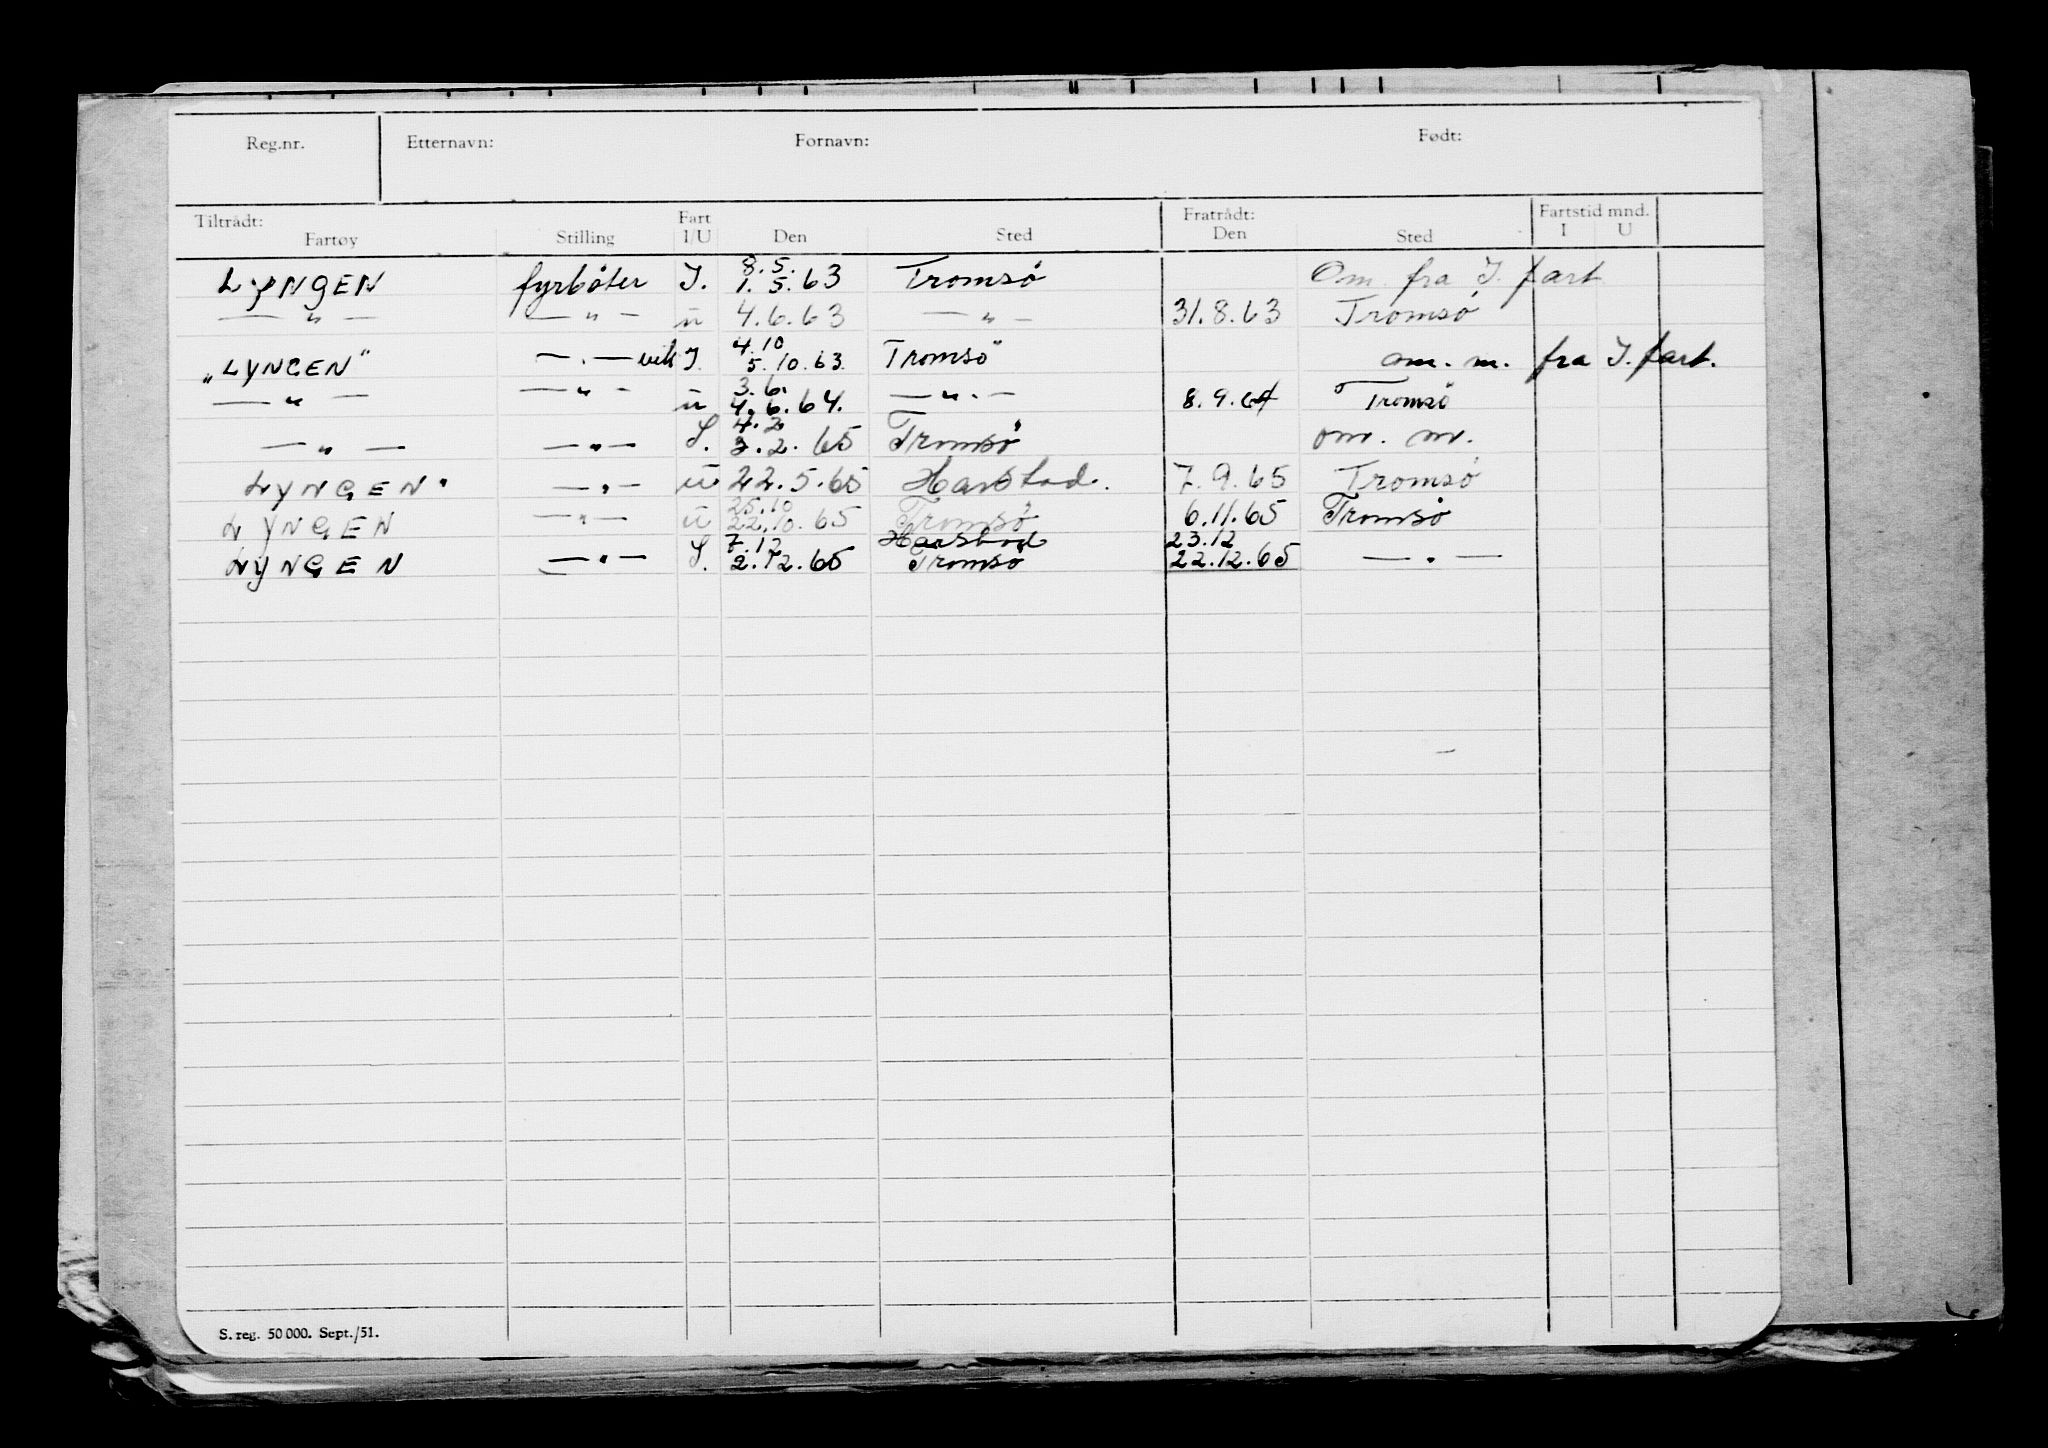 Reg.nr. Etternavn: Fornavn: Født:
Tiltrådt: Fart Fratrådt: Fartstid mnd.
Fartøy Stilling I/U Den Sted Den Sted I U
8.5.
LYNGEN fyrbøter I. 1.5.63 Tromsø Om. fra I. fart
— " — — " — u 4.6.63 — " — 31.8.63 Tromsø
4.10
"LYNGEN" — . — vik I. 5.10.63. Tromsø om. m. fra I. fart.
3.6.
— " — — " — u 4.6.64. — " . — 8.9.64 Tromsø
4.2
— " — — " — 3.2.65 Tromsø om. m.
LYNGEN" — " — u 22.5.65 Harstad. 7.9.65 Tromsø
25.10
LYNGEN — " — u 22.10.65 Tromsø 6.11.65 Tromsø
7.12 Harstad 23.12
LYNGEN — " — 2.12.65 Tromsø 22.12.65 — " —
S. reg. 50 000. Sept./51.